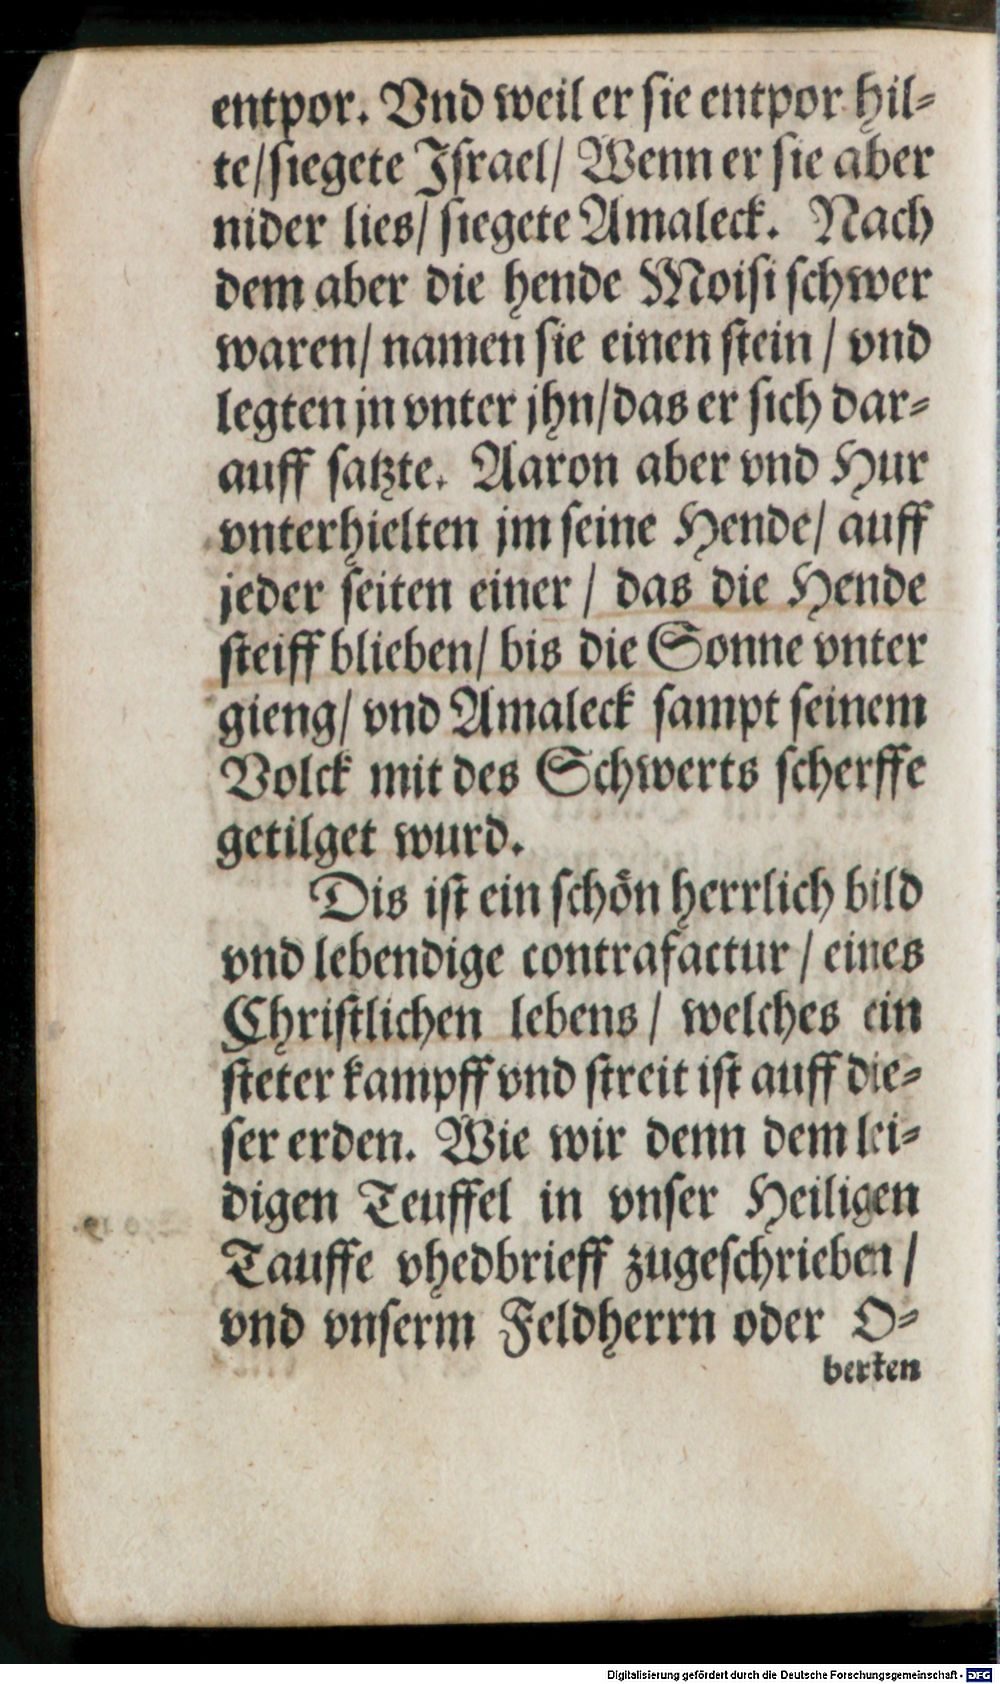 entpor. Vnd weil er sie entpor hil-
te/ siegete Jsrael/ Wenn er sie aber
nider lies/ siegete Amaleck. Nach
dem aber die hende Moisi schwer
waren/ namen sie einen stein / vnd
legten jn vnter jhn/ das er sich dar-
auff satzte. Aaron aber vnd Hur
vnterhielten jm seine Hende/ auff
jeder seiten einer / das die Hende
steiff blieben/ bis die Sonne vnter
gieng/ vnd Amaleck sampt seinem
Volck mit des Schwerts scherffe
getilget wurd.
Dis ist ein schön herrlich bild
vnd lebendige contrafactur / eines
Christlichen lebens / welches ein
steter kampff vnd streit ist auff die-
ser erden. Wie wir denn dem lei-
digen Teuffel in vnser Heiligen
Tauffe vhedbrieff zugeschrieben /
vnd vnserm Feldherrn oder O-
bersten
Digitalisierung gefördert durch die Deutsche Forschungsgemeinschaft - DFG